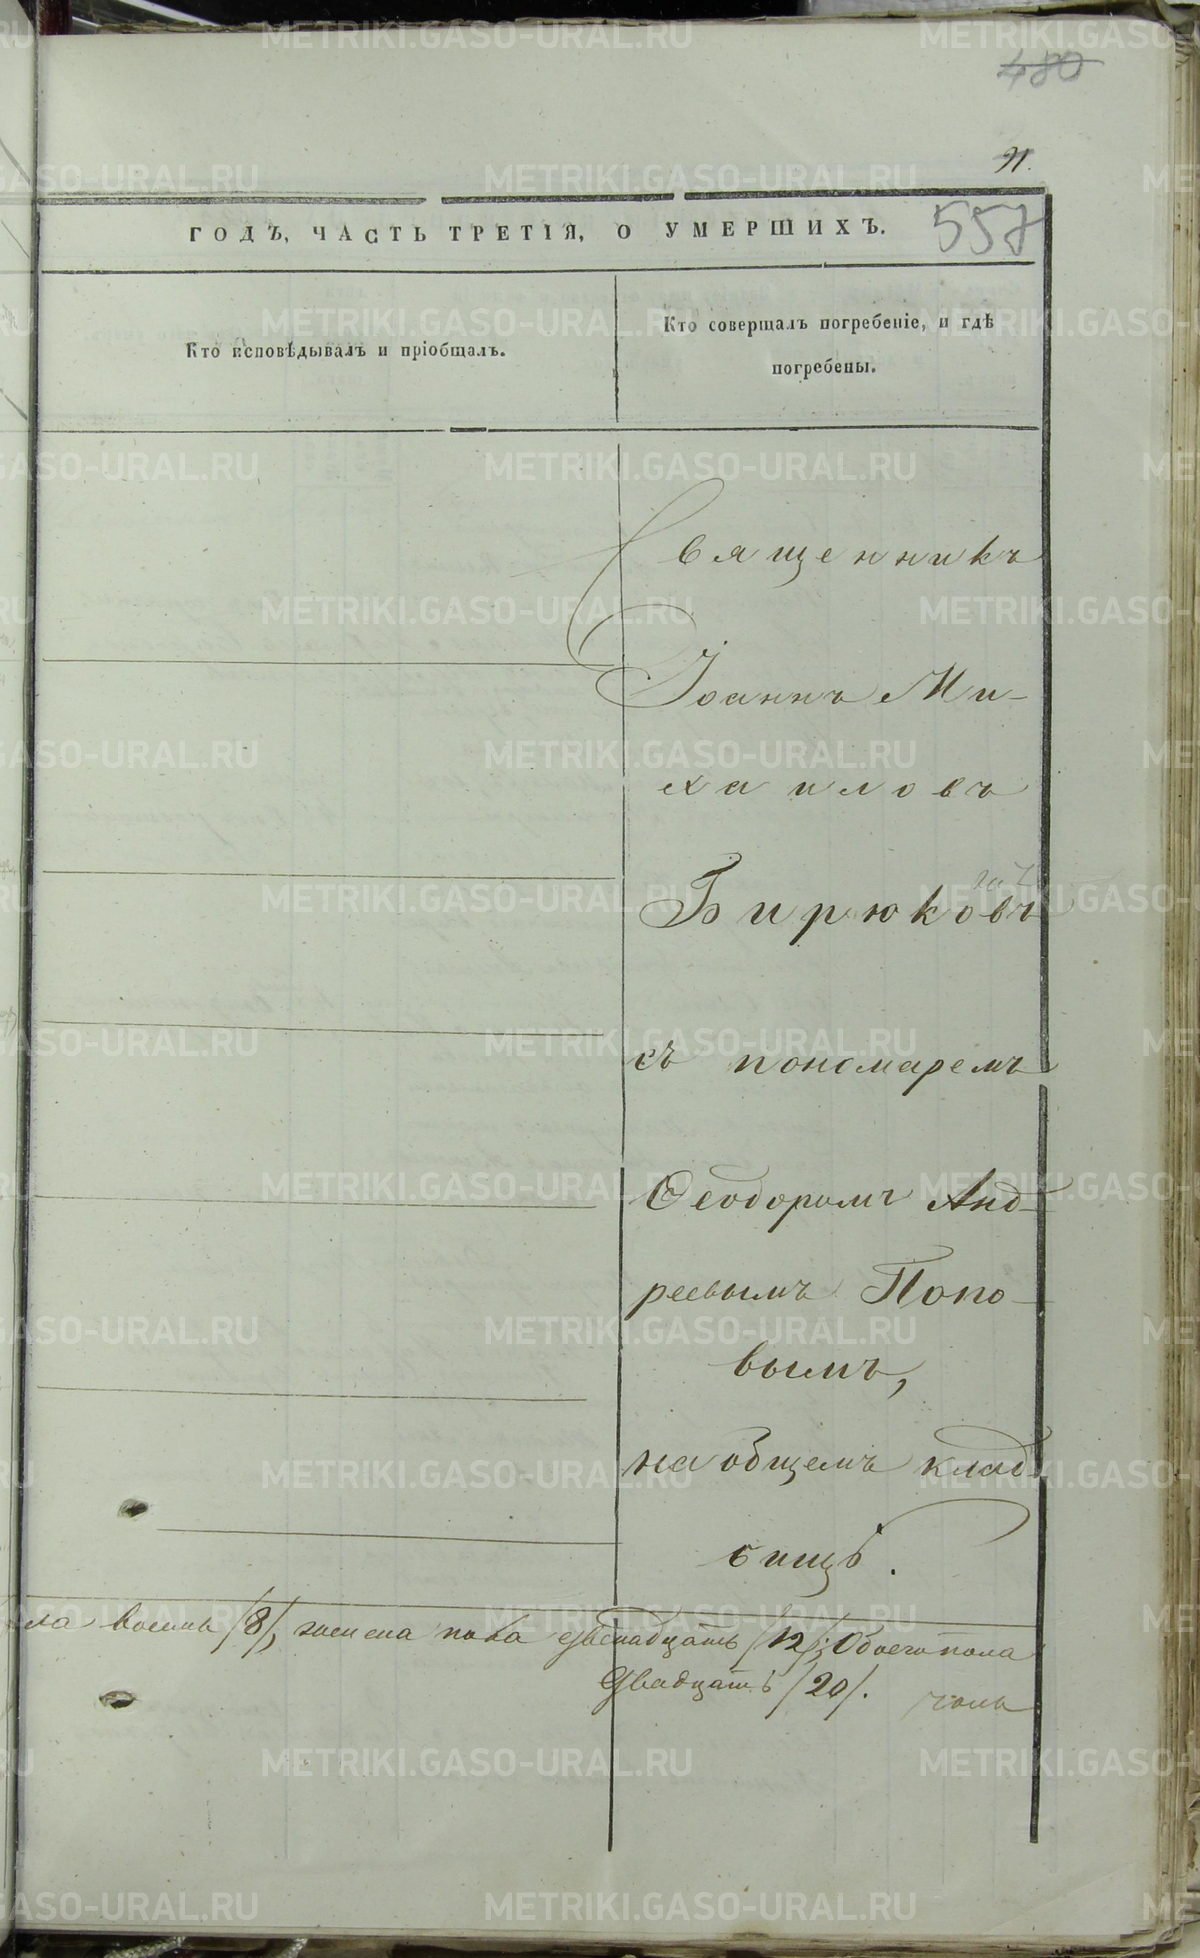 480
91.
557
ГОДЪ, ЧАСТЬ ТРЕТІЯ, О УМЕРШИХЪ.
Кто исповѣдывалъ и пріобщалъ.
Кто совершалъ погребеніе, и гдѣ
погребены.
Священникъ
Іоаннъ Ми-
хаиловъ
Бирюковъ
съ пономаремъ
Ѳеодоромъ Анд-
реевымъ Попо-
вымъ,
на общемъ клад
бищѣ.
ла восемь /8/, женска пола двенадцать /12/; Обоего пола
двадцать /20/.
METRIKI.GASO-URAL.RU